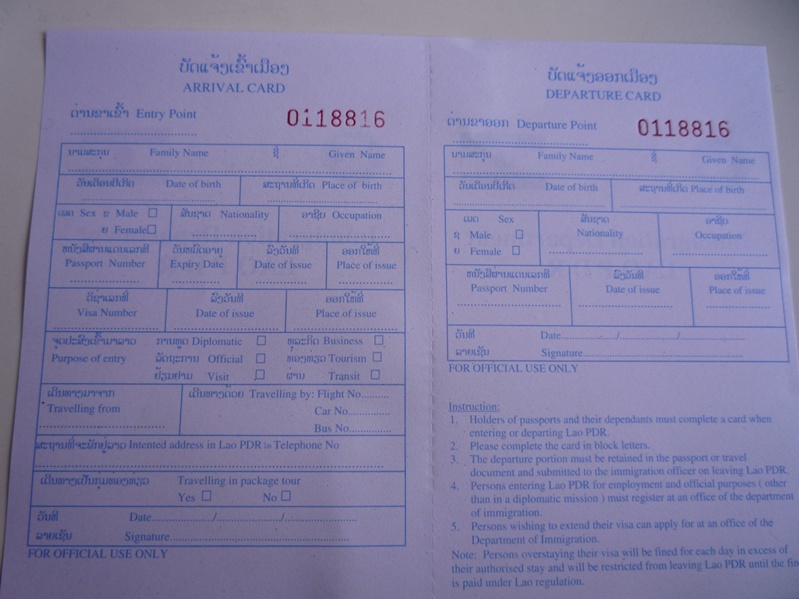 ບັດແຈ້ງເຂົ້າເມືອງ
ARRIVAL CARD
ດ່ານຂາເຂົ້າ Entry Point
0118816
ນາມສະກຸນ Family Name ຊື່ Given Name
ວັນເດືອນປີເກີດ Date of birth ສະຖານທີ່ເກີດ Place of birth
ເພດ Sex ຊ Male ສັນຊາດ Nationality ອາຊີບ Occupation
ຍ Female
ໜັງສືຜ່ານແດນເລກທີ ວັນໝົດອາຍຸ ລົງວັນທີ ອອກໃຫ້ທີ່
Passport Number Expiry Date Date of issue Place of issue
ວີຊາເລກທີ ລົງວັນທີ ອອກໃຫ້ທີ່
Visa Number Date of issue Place of issue
ຈຸດປະສົງເຂົ້າມາລາວ ການທູດ Diplomatic ທຸລະກິດ Business
Purpose of entry ລັດຖະການ Official ທ່ອງທ່ຽວ Tourism
ຢ້ຽມຢາມ Visit ຜ່ານ Transit
ເດີນທາງມາຈາກ ເດີນທາງດ້ວຍ Travelling by: Flight No..........
Travelling from Car No..........
Bus No..........
ສະຖານທີ່ຈະພັກຢູ່ລາວ Intented address in Lao PDR Telephone No
ເດີນທາງເປັນກຸ່ມທ່ອງທ່ຽວ Travelling in package tour
Yes No
ວັນທີ Date............/............/............
ລາຍເຊັນ Signature............
FOR OFFICIAL USE ONLY
ບັດແຈ້ງອອກເມືອງ
DEPARTURE CARD
ດ່ານຂາອອກ Departure Point
0118816
ນາມສະກຸນ Family Name ຊື່ Given Name
ວັນເດືອນປີເກີດ Date of birth ສະຖານທີ່ເກີດ Place of birth
ເພດ Sex ສັນຊາດ ອາຊີບ
ຊ Male Nationality Occupation
ຍ Female
ໜັງສືຜ່ານແດນເລກທີ ລົງວັນທີ ອອກໃຫ້ທີ່
Passport Number Date of issue Place of issue
ວັນທີ Date............/............/............
ລາຍເຊັນ Signature............
FOR OFFICIAL USE ONLY
Instruction:
1. Holders of passports and their dependants must complete a card when
entering or departing Lao PDR.
2. Please complete the card in block letters.
3. The departure portion must be retained in the passport or travel
document and submitted to the immigration officer on leaving Lao PDR.
4. Persons entering Lao PDR for employment and official purposes ( other
than in a diplomatic mission ) must register at an office of the department
of immigration.
5. Persons wishing to extend their visa can apply for at an office of the
Department of Immigration.
Note: Persons overstaying their visa will be fined for each day in excess of
their authorised stay and will be restricted from leaving Lao PDR until the fine
is paid under Lao regulation.